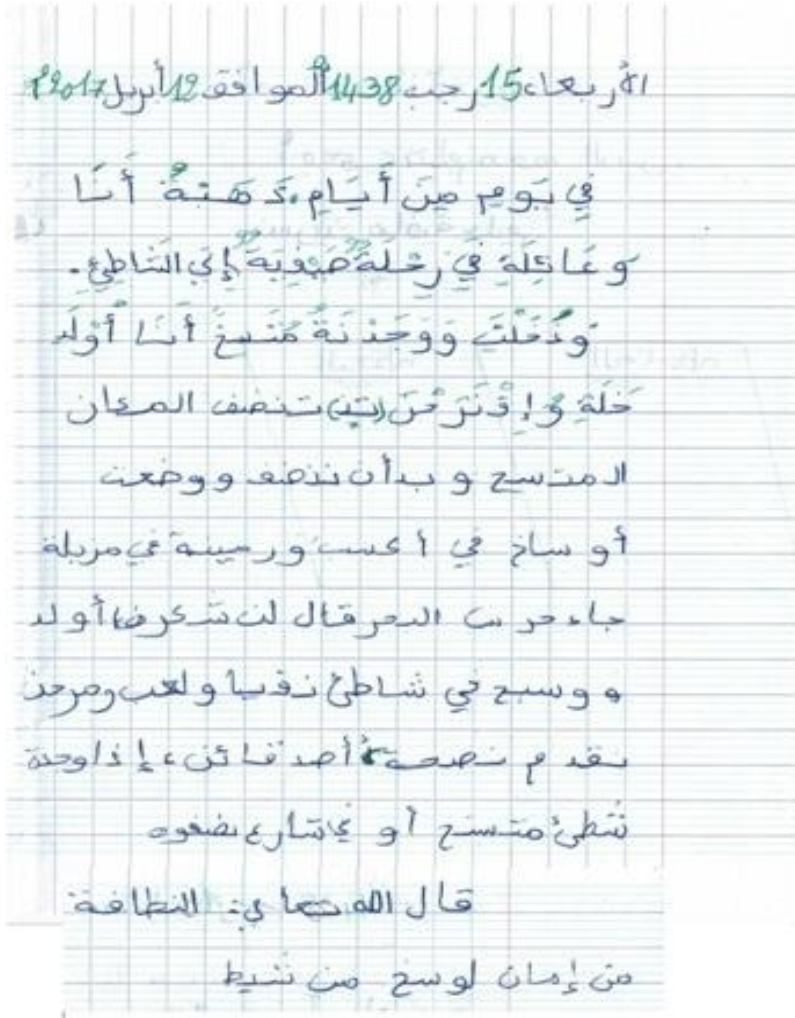 الأربعاء 15 رجب 1438ه الموافق 12 أبريل 2017م
في يَومِ مِنَ أَيَامِ. ذَهَبَةُ أَنَا
وعَائِلَةِ فِي رِحْلَةٍ صَيْفِيَةٍ إِلَى الشَاطِئِ.
وَدَخَلْتَ وَوَجَدْنَهُ مُتَسِخَ أَنَا أَوْلَدَ
خَلَةِ وَ إِقْتَرَحْنَ (تن) تنضف المكان
المتسخ و بدأن ننضف ووضعت
أو ساخ في أكسب ورمينة في مزيلة
جاء حر س البحر قال لن شكر ضا أولد
ووسبح في شاطئ نقيا ولعب ومرحن
نقد م نصحة أصدقائن، إذا وجدة
شطئ متسخ أو ع شارع نضفوه
قال الله تعا لى: النظافة
من إمان لوسخ من شيط